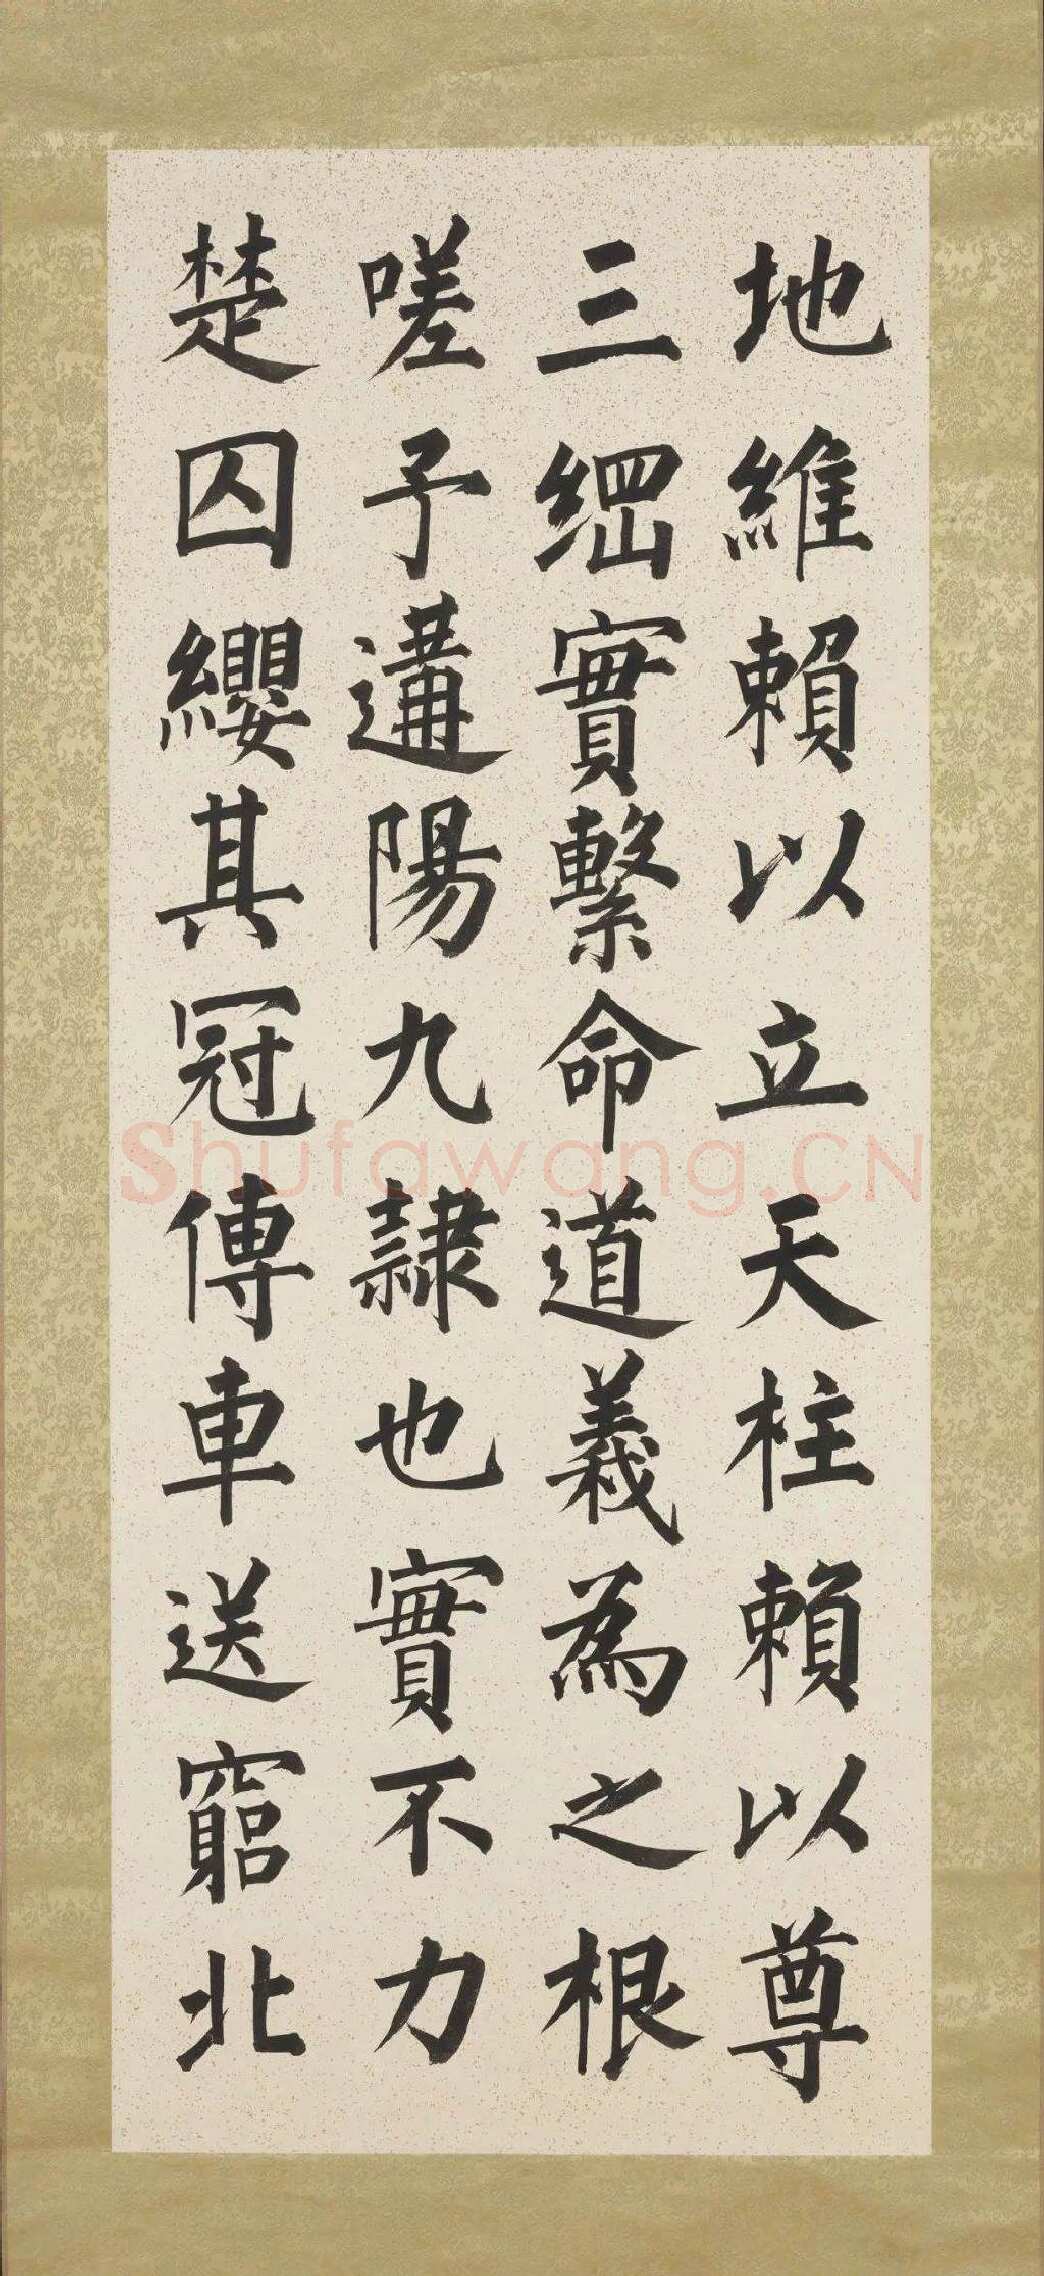 地維賴以立天柱賴以尊
三綱實繫命道義為之根
嗟予遘陽九隷也實不力
楚囚纓其冠傳車送窮北
Shufawang.CN